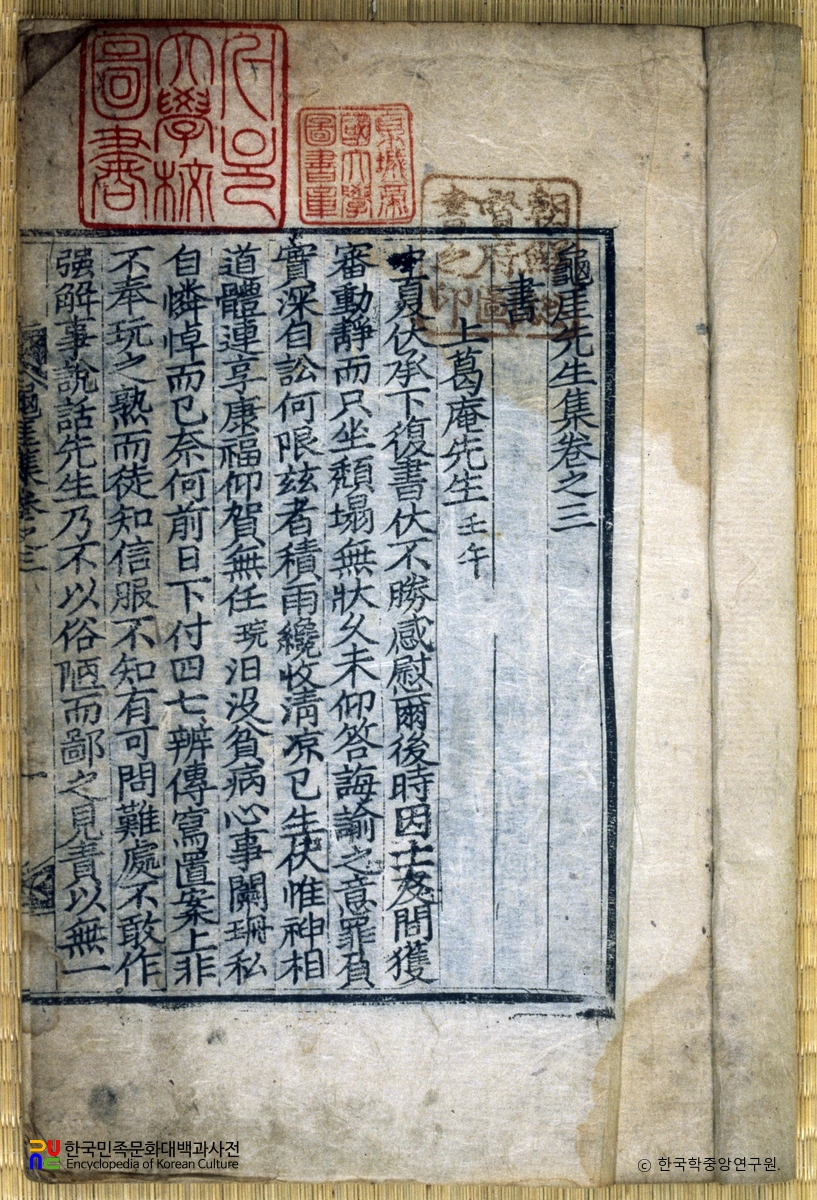 서울
大學校
圖書
京城帝
國大學
圖書章
朝鮮總
督府圖
書之印
龜厓先生集卷之三
書
上葛庵先生 壬午
夏伏承下復書伏不勝感慰爾後時因士友間獲
審動靜而只坐頹塌無狀久未仰答誨諭之意罪負
實深自訟何限玆者積雨纔收淸凉已生伏惟神相
道體連享康福仰賀無任琓汨没貧病心事闌珊私
自憐悼而已奈何前日下付四七辨傳寫置案上非
不奉玩之熟而徒知信服不知有可問難處不敢作
强解事說話先生乃不以俗陋而鄙之見責以無一
龜厓集卷之三
一
한국민족문화대백과사전
Encyclopedia of Korean Culture
© 한국학중앙연구원.